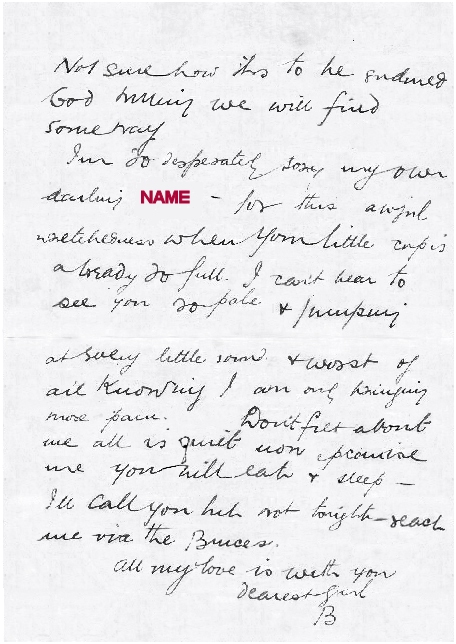 Not sure how its to be endured
God willing we will find
someway
I'm so desperately sorry my own
darling NAME - for this awful
wretchedness when your little cup is
already so full. I can't bear to
see you so pale & jumping
at every little sound & worst of
all knowing I am only bringing
more pain. Don't fret about
me all is quiet now & promise
me you will eat & sleep -
I'll call you but not tonight - reach
me via the Bruces.
All my love is with you
dearest girl
B